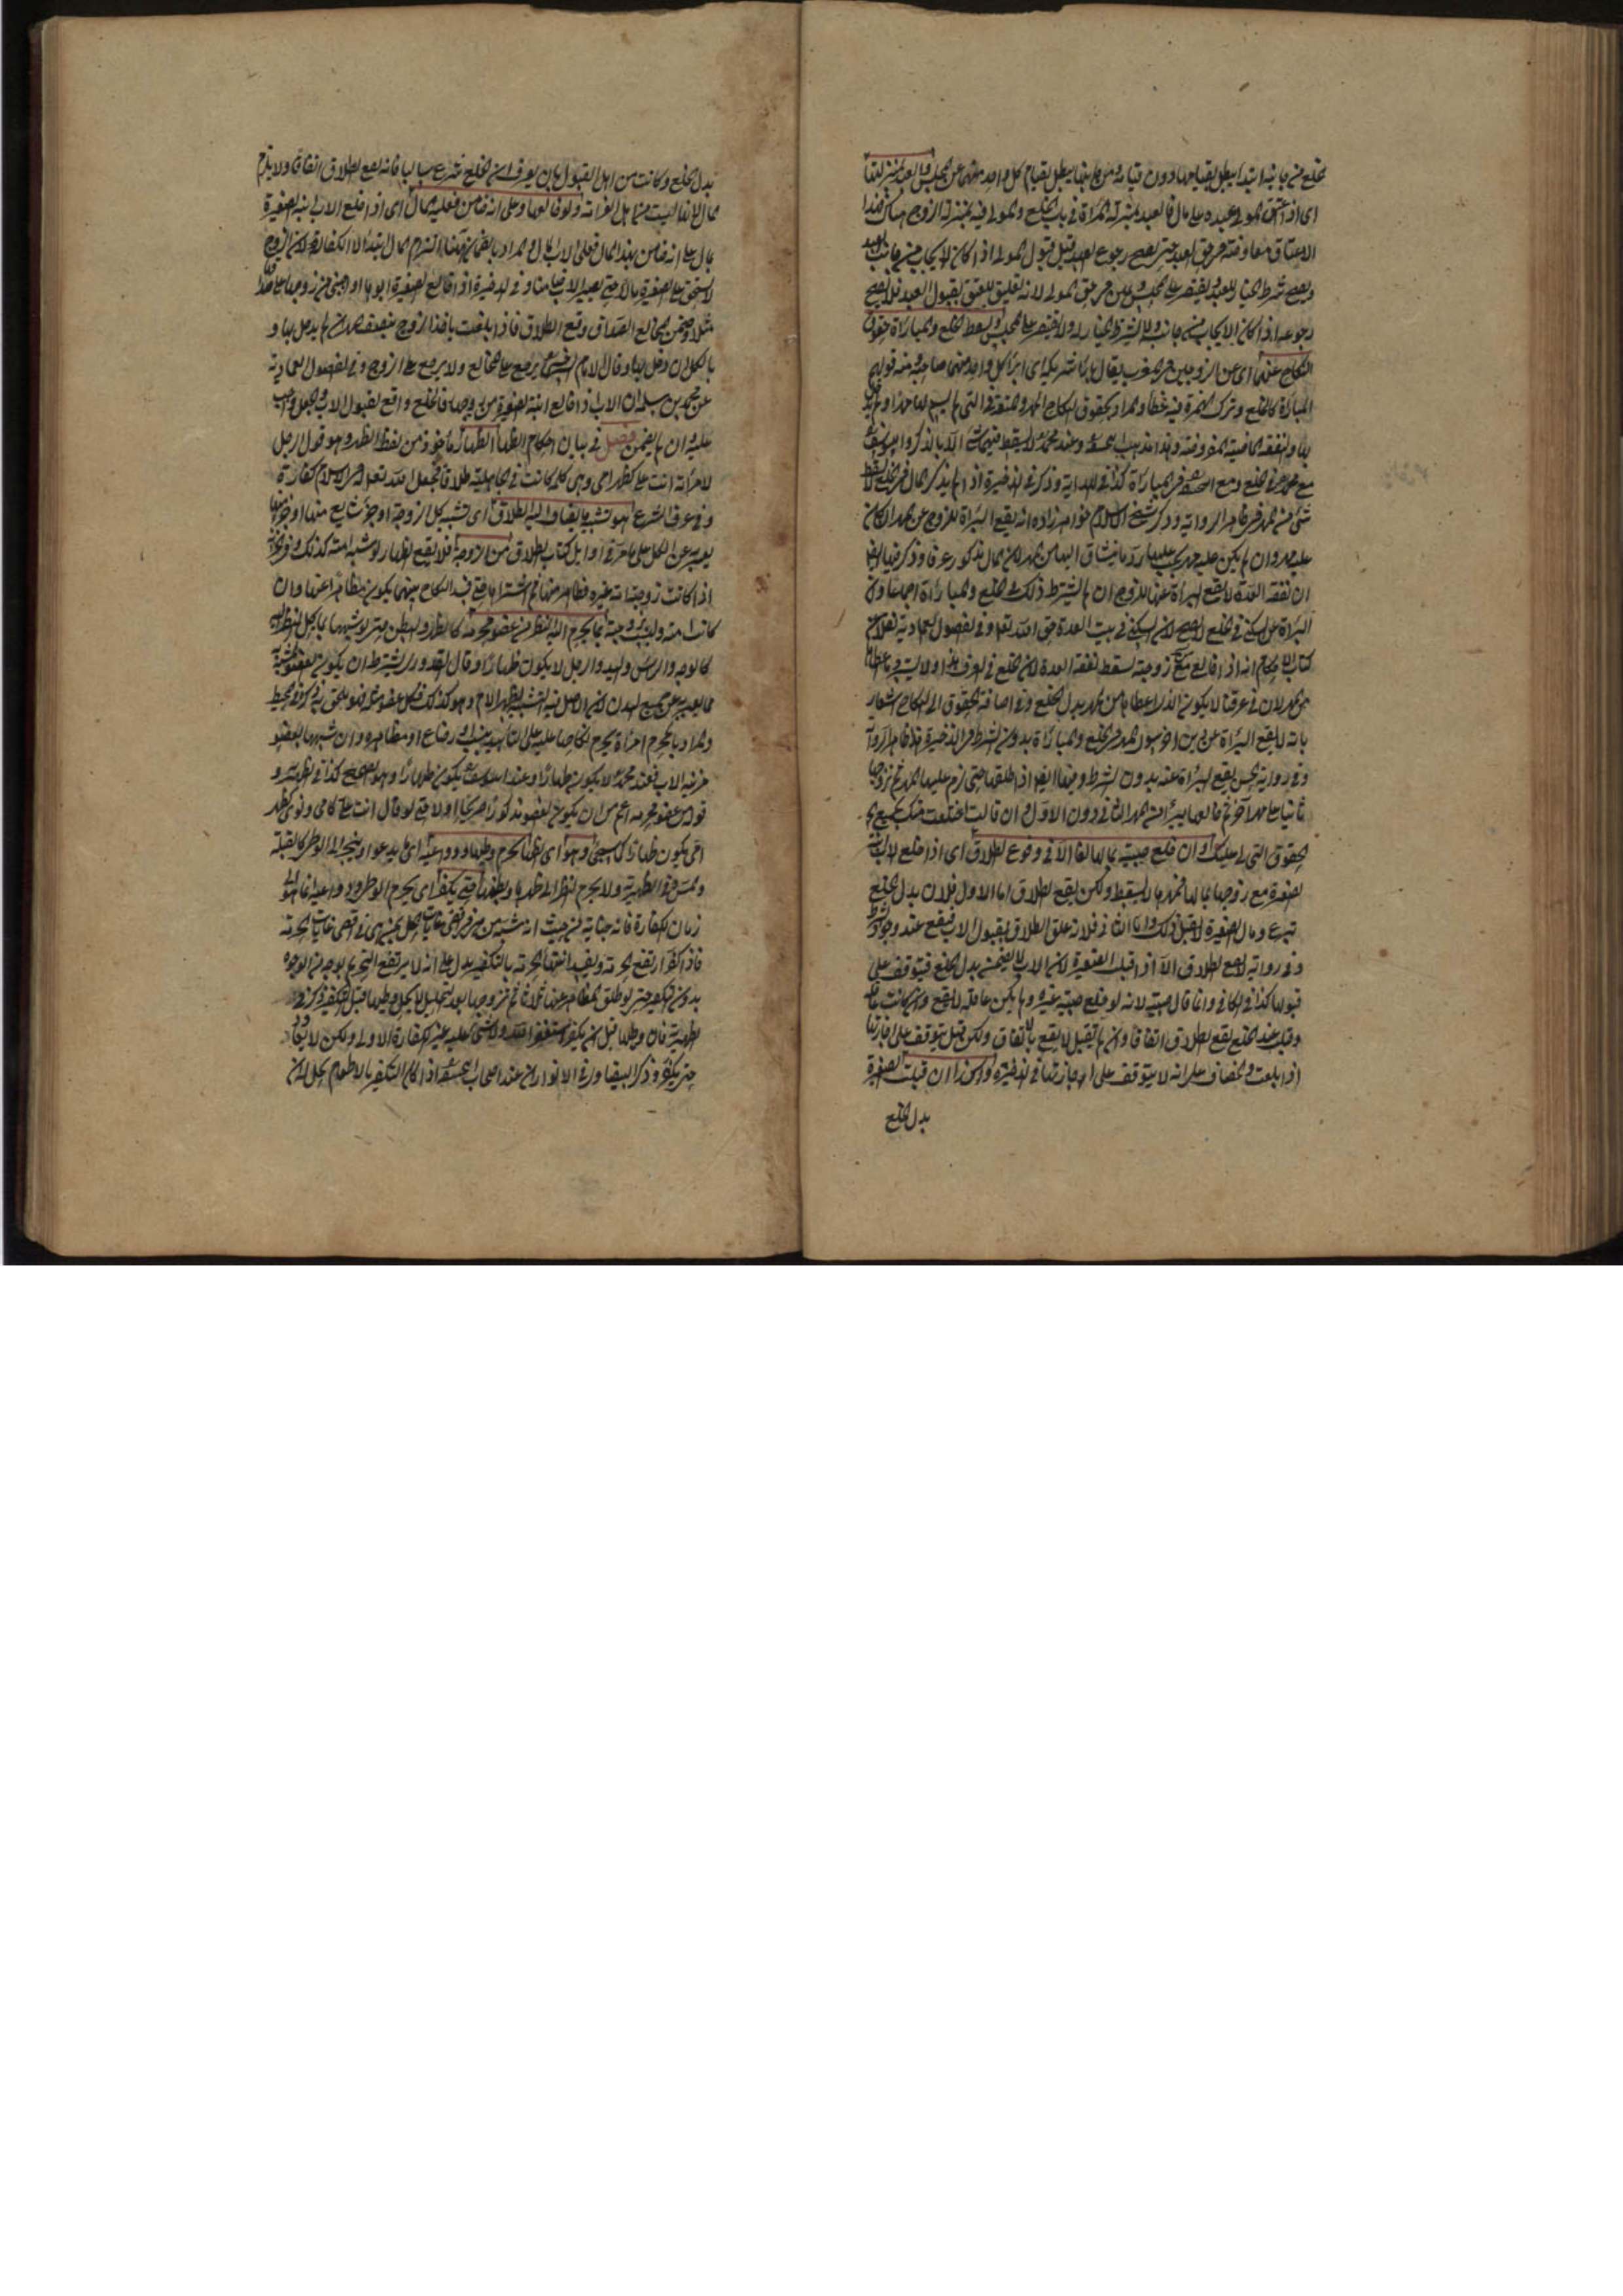 الخلع من جانبه ابتداء يبطل بقيامها دون قيامه ومن جانبها يبطل بقيام كل واحد منهما عن المجلس والعبد بمنزلتها
اى اذا اعتق المولى عبده على مال فالعبد بمنزلة المرأة فى باب الخلع والمولى فيه بمنزلة الزوج هناك فهذا
الاعتاق معاوضة من حق العبد حتى يصح رجوع العبد قبل قبول المولى اذا كان الايجاب من جانب العبد
ويصح شرط الخيار للعبد ويقتصر على المجلس ويمين من حق المولى لانه تعليق للعتق بقبول العبد فلا يصح
رجوعه اذا كان الايجاب من جانبه ولا الشرط الخيار له ولا يقتصر على المجلس ويسقط الخلع والمباراة حقوق
النكاح عنهما اى عن الزوجين فى المغرب يقال بارأ شريكه اى ابرأ كل واحد منهما صاحبه ومنه قولهم
المباراة كالخلع وترك الهمزة فيه خطأ والمراد بحقوق النكاح المهر والمتعة فى التى لم يسم لها مهرا ولم يدخل
بها والنفقة الماضية المفروضة وهذا مذهب ابى حنيفة وعند محمد لا يسقط فيهما شئ الا ما ذكر وابو يوسف
مع محمد فى الخلع ومع ابى حنيفة فى المباراة كذا فى الهداية وذكر فى الذخيرة اذا لم يذكر المال فى الخلع لا يسقط
شئ من المهر فى ظاهر الرواية وذكر شيخ الاسلام خواهر زاده انه يقع البراءة للزوج عن المهر ان كان
عليه مهر وان لم يكن عليه مهر يجب عليها رد ما ساق اليها من المهر لان المال مذكور عرفا وذكر فيها ايضا
ان نفقة العدة لا يقع البراءة عنها للزوج ان لم يشترط ذلك فى الخلع والمباراة اجماعا وان
البراءة عن السكنى فى الخلع لا يصح لان السكنى فى بيت العدة حق الله تعالى وفى الفصول العمادية نقلا عن
كتاب الاحكام انه اذا خالع مع زوجته يسقط نفقة العدة لان الخلع فى العرف هذا ولا يسترد ما اعطاها
من المهر لان فى عرفنا لا يكون الذى اعطاها من المهر بدل الخلع وفى اضافة الحقوق الى النكاح اشعار
بانه لا يقع البراءة عن دين آخر سوى المهر فى الخلع والمباراة بدون الشرط فى الذخيرة هذا ظاهر الرواية
وفى رواية الحسن يقع البراءة عنه بدون الشرط وفيها ايضا اذا طلقها حتى لزم عليه المهر ثم تزوجها
ثانيا على مهر آخر ثم خالعها يبرأ من المهر الثانى دون الاول وان قالت اختلعت منك بجميع
الحقوق التى لى عليك وان خلع صبيته بمالها لغا الا فى وقوع الطلاق اى اذا خلع الاب ابنته
الصغيرة مع زوجها بمالها فمهرها لا يسقط ولكن يقع الطلاق اما الاول فلان بدل الخلع
تبرع ومال الصغيرة لا يقبل ذلك واما الثانى فلانه علق الطلاق بقبول الاب فيقع عند وجود الشرط
وفى رواية لا يقع الطلاق الا اذا قبلت الصغيرة لان الاب لا يضمن بدل الخلع فيتوقف على
قبولها كذا فى الكافى وانما قال صبيته لانه لو خلع صبية غيره ولم يكن عاقلة لا يقع وان كانت عاقلة
وقبلت عند الخلع يقع الطلاق اتفاقا وان لم تقبل لا يقع بالاتفاق ولكن قيل يتوقف على اجازتها
اذا بلغت والخصاف على انه لا يتوقف على اجازتها فى الذخيرة وكذا ان قبلت الصغيرة
بدل الخلع
بدل الخلع وكانت من اهل القبول بان يعرف ان الخلع شرع سالبا فانه يقع الطلاق اتفاقا ولا يلزم
المال لانها ليست من اهل الغرامة ولو خالعها وعلى انه ضامن فعليه المال اى اذا خلع الاب ابنته الصغيرة
بمال على انه ضامن بهذا المال فعلى الاب المال والمراد بالضمان هنا التزام المال ابتداء لا الكفالة لان الزوج
لا يستحق على الصغيرة مالا حتى يصير الاب ضامنا وفى الذخيرة اذا خالع الصغيرة ابوها او اجنبى من زوجها على صداقها
مثلا وضمن المخالع الصداق وقع الطلاق فاذا بلغت يأخذ الزوج بنصف المهر ان لم يدخل بها و
بالكل ان دخل بها وقال الامام السرخسى يرجع على المخالع ولا يرجع على الزوج وفى الفصول العمادية
عن محمد بن سلمة ان الاب اذا خالع ابنته الصغيرة من زوجها فالخلع واقع بقبول الاب والجعل واجب
عليه وان لم يضمن فصل فى بيان احكام الظهار الظهار مأخوذ من لفظ الظهر وهو قول الرجل
لامرأته انت على كظهر امى وهى كلمة كانت فى الجاهلية طلاقا فجعل الله تعالى فى الاسلام كفارة
وفى عرف الشرع هو تشبيه ما يضاف اليه الطلاق اى تشبيه كل الزوجة او جزء شايع منها او جزء منها
يعبر به عن الكل على ما مر فى اوايل كتاب الطلاق من الزوجة فلا يقع الظهار لو شبه امته كذلك وفى الخانية
اذا كانت زوجته امة غيره فظاهر منها ثم اشتراها يرتفع النكاح بينهما يكون مظاهرا عنها وان
كانت امة وليست زوجية بما يحرم اليه النظر من عضو محرمه كالظهر والبطن حتى لو شبهها بما يحل النظر اليه
كالوجه والرأس واليد والرجل لا يكون ظهارا وقال القدورى يشترط ان يكون العضو المشبه به
مما يعبر به عن جميع البدن لان الاصل فيه التشبيه بظهر الام وهو كذلك فكل عضو مثله فهو يلحق به فى المحيط
والمراد بالمحرم امرأة يحرم نكاحها عليه على التأبيد بنسب او رضاع او مظاهرة وان شبهها بعضو
مزنية الاب فعند محمد لا يكون ظهارا وعند ابى يوسف يكون ظهارا وهو الصحيح كذا فى الظهيرية و
قوله من عضو محرمه اعم من ان يكون العضو مذكورا صريحا اولا حتى لو قال انت على كامى ونوى كظهر
امى يكون ظهارا كما سيجئ وهو اى الظهار يحرم وطيها ودواعيه اى ما يدعو او ينجر الى الوطى كالقبلة
والمس فى الظهيرية ولا يحرم النظر الى ظهرها وبطنها حتى يكفر اى يحرم الوطى ودواعيه الى
زمان الكفارة فانه جناية من حيث انه شبه من هى فى اقصى غايات الحل بمن هى فى اقصى غايات الحرمة
فاذا كفر ارتفع الحرمة وتقييد انتهاء الحرمة بالتكفير يدل على انه لا يرتفع التحريم بوجه من الوجوه
بدون التكفير حتى لو طلق المظاهر عنها ثلاثا ثم تزوجها بعد التحليل لا يحل وطيها قبل التكفير ذكره فى
الظهيرية فان وطيها قبل ان يكفر استغفر الله ولا شئ عليه غير الكفارة الاولى ولكن لا يعاود
حتى يكفر وذكر البيضاوى فى الانوار ان عند اصحاب ابى حنيفة اذا كان التكفير بالاطعام يحل ان